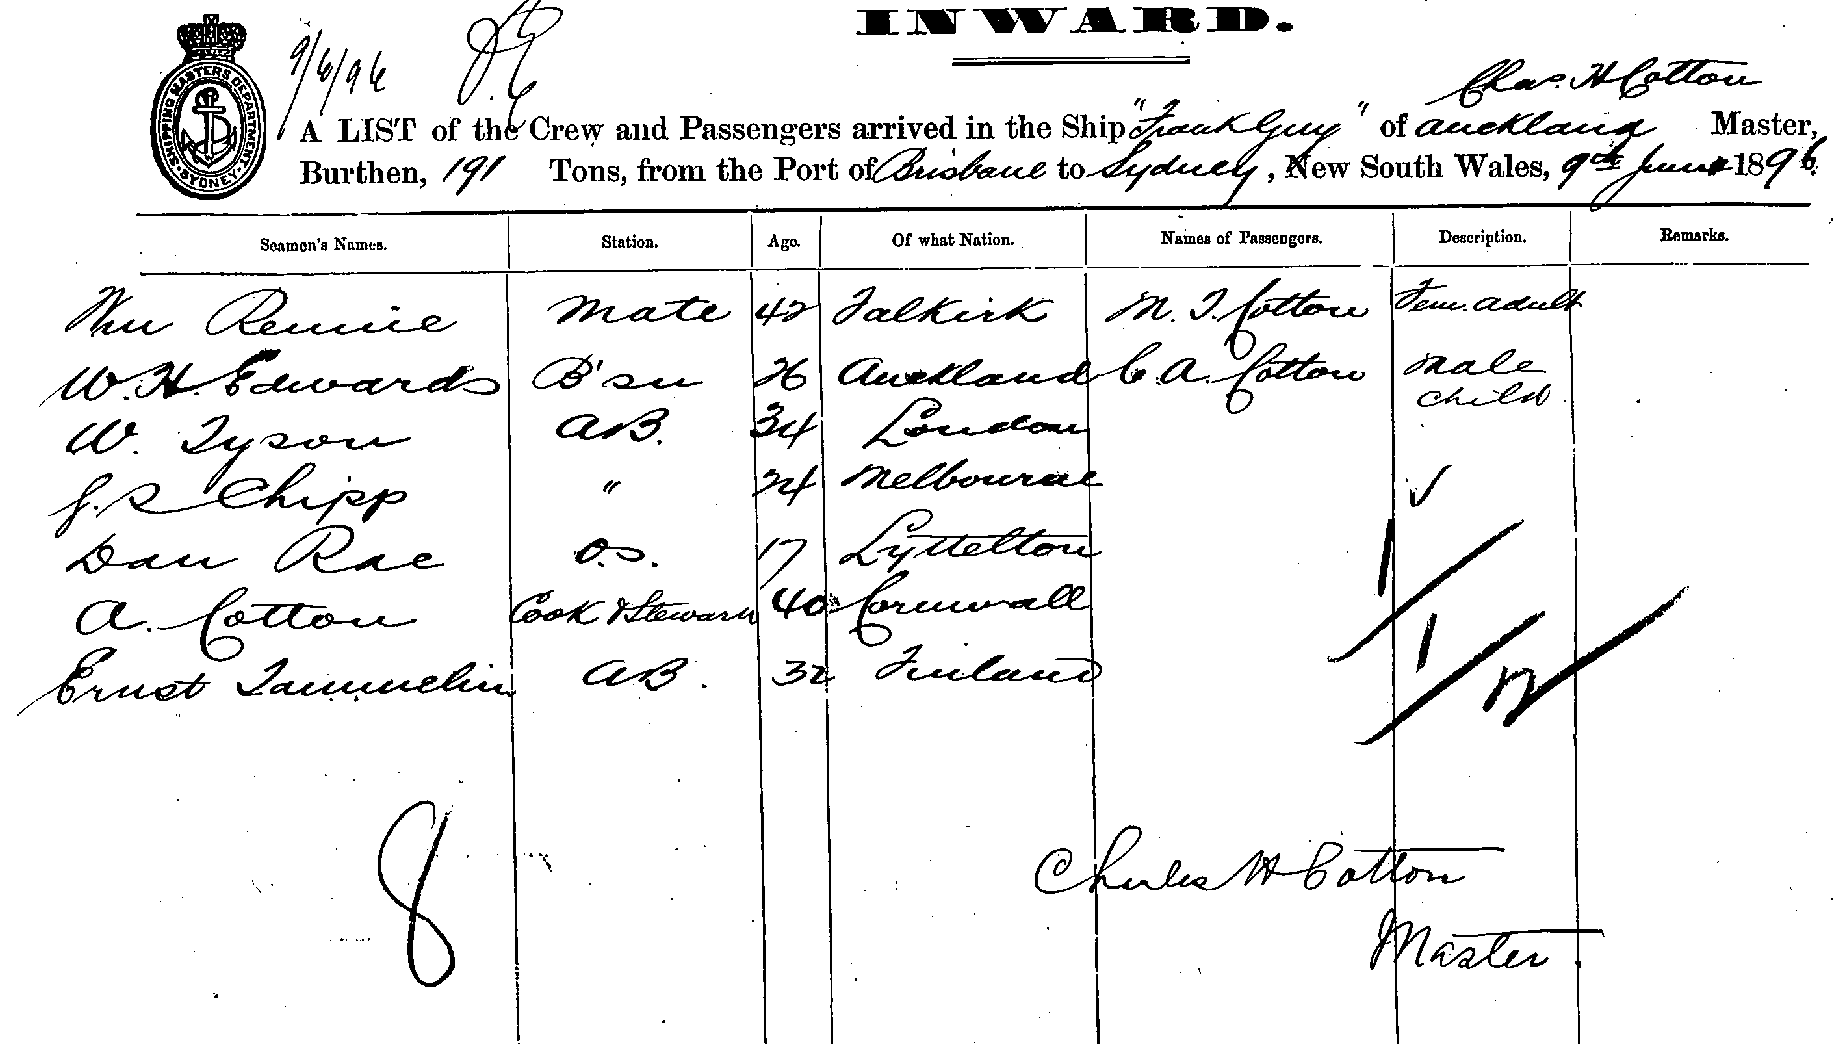 INWARD.
SHIPPING MASTERS DEPARTMENT
SYDNEY
9/6/96
Chas. H Cotton
A LIST of the Crew and Passengers arrived in the Ship "Frank Guy" of Auckland Master,
Burthen, 191 Tons, from the Port of Brisbane to Sydney, New South Wales, 9th June 1896
Seamen's Names. Station. Age. Of what Nation. Names of Passengers. Description. Remarks.
Wm Rennie Mate 42 Falkirk M. T. Cotton Fem. adult
W. H. Edwards B'sn 26 Auckland C. A. Cotton Male child
W. Tyson AB. 34 London
J. S Chipp " 24 Melbourne
Dan Rae O.S. 17 Lyttelton
A. Cotton Cook & Steward 40 Cornwall
Ernst AB. 32 Finland
1/
1/
8
Charles H Cotton
Master.